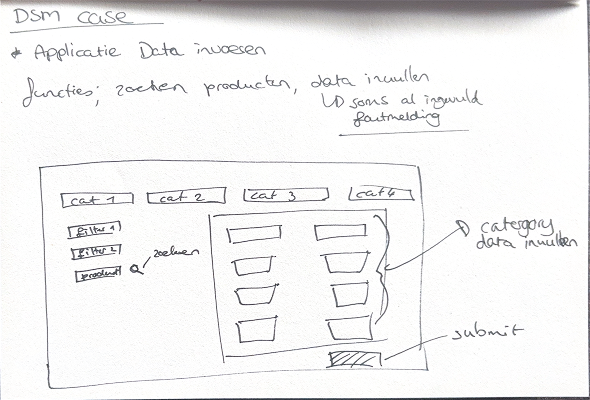 DSM case
* Applicatie Data invoeren
functies; zoeken producten, data invullen
↳ soms al ingevuld
foutmelding
cat 1 cat 2 cat 3 cat 4
filter 1
filter 2
product zoeken
category
data invullen
submit